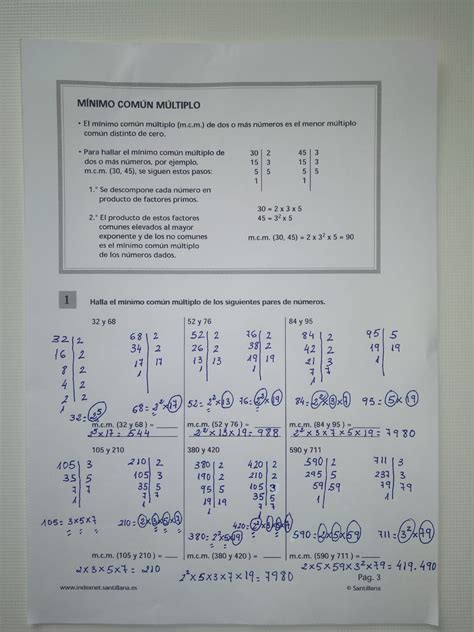 MÍNIMO COMÚN MÚLTIPLO
• El mínimo común múltiplo (m.c.m.) de dos o más números es el menor múltiplo
común distinto de cero.
• Para hallar el mínimo común múltiplo de
dos o más números, por ejemplo,
m.c.m. (30, 45), se siguen estos pasos:
1.° Se descompone cada número en
producto de factores primos.
2.° El producto de estos factores
comunes elevados al mayor
exponente y de los no comunes
es el mínimo común múltiplo
de los números dados.
30 2 45 3
15 3 15 3
5 5 5 5
1 1
30 = 2 x 3 x 5
45 = 3² x 5
m.c.m. (30, 45) = 2 x 3² x 5 = 90
1 Halla el mínimo común múltiplo de los siguientes pares de números.
32 y 68
32 2 68 2
16 2 34 2
8 2 17 17
4 2 1
2 2
1
32 = 2⁵ 68 = 2² x 17
m.c.m. (32 y 68) =
2⁵ x 17 = 544
52 y 76
52 2 76 2
26 2 38 2
13 13 19 19
1 1
52 = 2² x 13 76 = 2² x 19
m.c.m. (52 y 76) =
2² x 13 x 19 = 988
84 y 95
84 2 95 5
42 2 19 19
21 3 1
7 7
1
84 = 2² x 3 x 7 95 = 5 x 19
m.c.m. (84 y 95) =
2² x 3 x 7 x 5 x 19 = 7980
105 y 210
105 3 210 2
35 5 105 3
7 7 35 5
1 7 7
1
105 = 3 x 5 x 7 210 = 2 x 3 x 5 x 7
m.c.m. (105 y 210) =
2 x 3 x 5 x 7 = 210
380 y 420
380 2 420 2
190 2 210 2
95 5 105 3
19 19 35 5
1 7 7
1
420 = 2² x 3 x 5 x 7
380 = 2² x 5 x 19
m.c.m. (380 y 420) =
2² x 5 x 3 x 7 x 19 = 7980
590 y 711
590 2 711 3
295 5 237 3
59 59 79 79
1 1
590 = 2 x 5 x 59 711 = 3² x 79
m.c.m. (590 y 711) =
2 x 5 x 59 x 3² x 79 = 419.490
Pág. 3
www.indexnet.santillana.es © Santillana